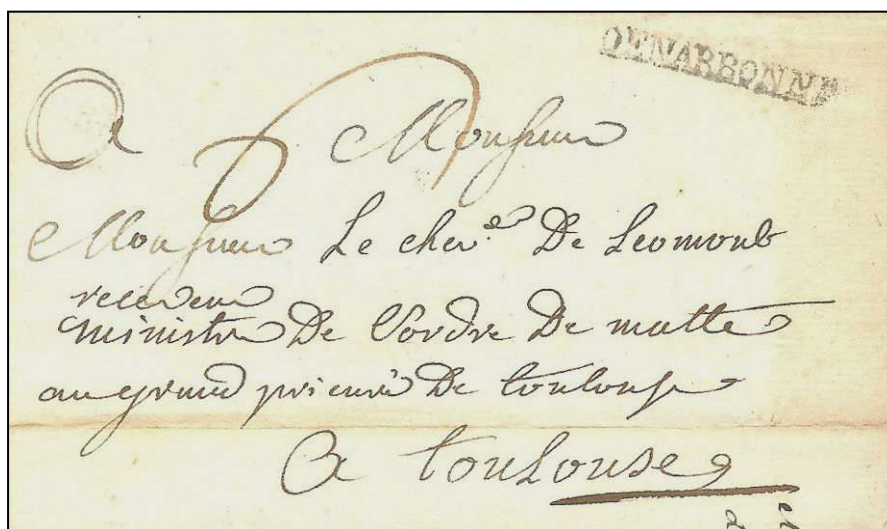 DENARBONNE
A Monsieur
Monsieur Le cher De Leomont
receveur
ministre De L'ordre De malte
au grand prieuré De toulouse
A toulouse